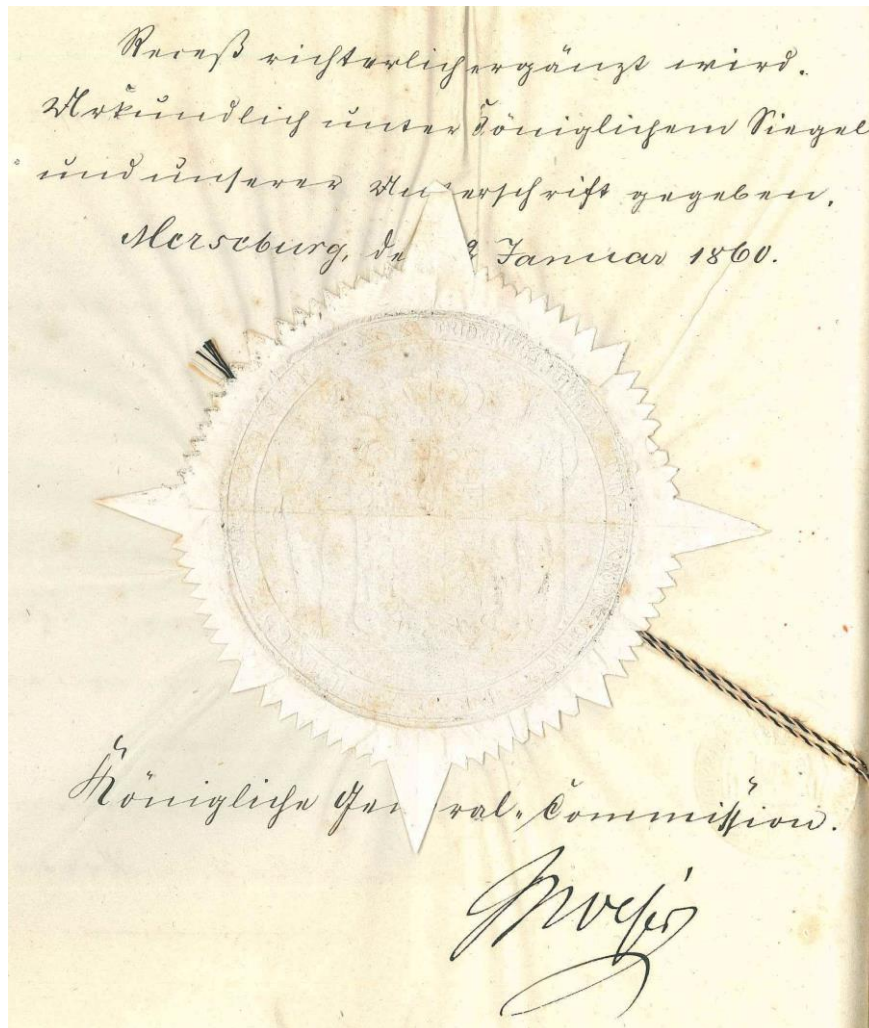 Receß richterlich ergänzt wird.
Urkundlich unter Königlichem Siegel
und unserer Unterschrift gegeben.
Merseburg, de Januar 1860.
Königliche General-Commission.